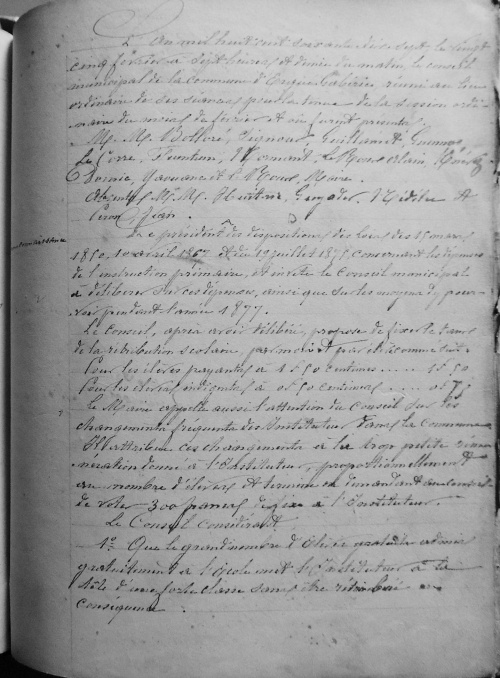 L'an mil huit cent soixante dix sept le vingt
cinq février à sept heures et demie du matin le conseil
municipal de la commune d'Ergué-Gabéric réuni au lieu
ordinaire de ses séances pour la tenue de la session ordi-
naire du mois de février et où furent présents
M. M. Bolloré, Signour, Guillamet,
Le Corre,
et Le Roux, Maire.
Absents M. M. Huitric, et
Jean.
Le président des dispositions des lois des 15 mars
1850, 10 avril 1867 et du 19 juillet 1875 concernant les dépenses
de l'instruction primaire, et invite le Conseil municipal
à délibérer sur ces dépenses, ainsi que sur les moyens d'y pour-
voir pendant l'année 1877.
Le Conseil, après avoir délibéré, propose de fixer le taux
de la rétribution scolaire, par mois et par élève comme suit:
Pour les élèves payants à 1f50 centimes .... 1f50
Pour les élèves indigents à 0f50 centimes ....
Le Maire appelle aussi l'attention du Conseil sur les
changements fréquents des Instituteurs dans la Commune
Il attribue ces changements à la trop petite rému-
nération donnée à l'Instituteur, proportionnellement
au nombre d'élèves et termine en demandant au conseil
de voter 300 francs de fixe à l'Instituteur.
Le Conseil Considérant
1o. Que le grand nombre d'élèves admis
gratuitement à l'école met l'Instituteur à la
tête d'une forte classe sans être rétribué en
conséquence